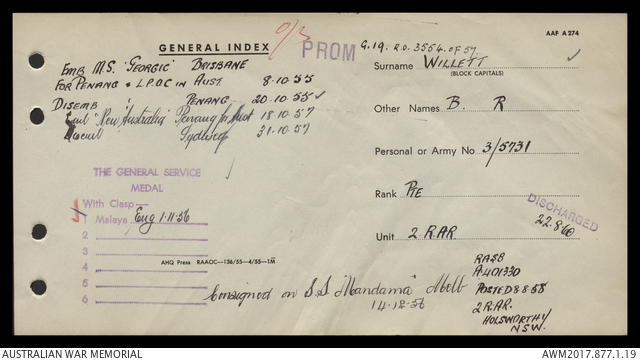 AAF A274
GENERAL INDEX
PROM
G.19. R.O. 3554. OF 57.
Surname WILLETT
(BLOCK CAPITALS)
EMB M.S. 'GEORGIC' BRISBANE
FOR PENANG & L.P.O.C IN AUST. 8-10-55
DISEMB " PENANG 20-10-55
"New Australia" Penang Aust 18.10.57
Sydney 31.10.57
Other Names B. R
Personal or Army No. 3/5731
Rank PTE
Unit 2 RAR.
DISCHARGED
22.8.60
THE GENERAL SERVICE
MEDAL
With Clasp—
1 Malaya Eng 1.11.56
2
3
4
5
6
AHQ Press RAAOC—136/55—4/55—1M
Consigned on S.S. "Mandama" Melb
14-12-56
RASB
A401330
POSTED 8.8.58
2 RAR.
HOLSWORTHY
N.S.W.
AUSTRALIAN WAR MEMORIAL
AWM2017.877.1.19